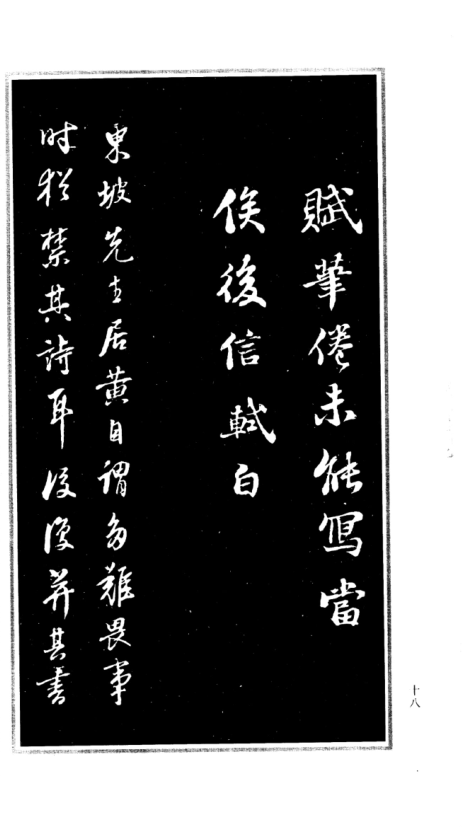 賦筆倦未能寫當
俟後信軾白
東坡先生居黃自謂多難畏事
时猶禁其詩耳後復并其書
十八